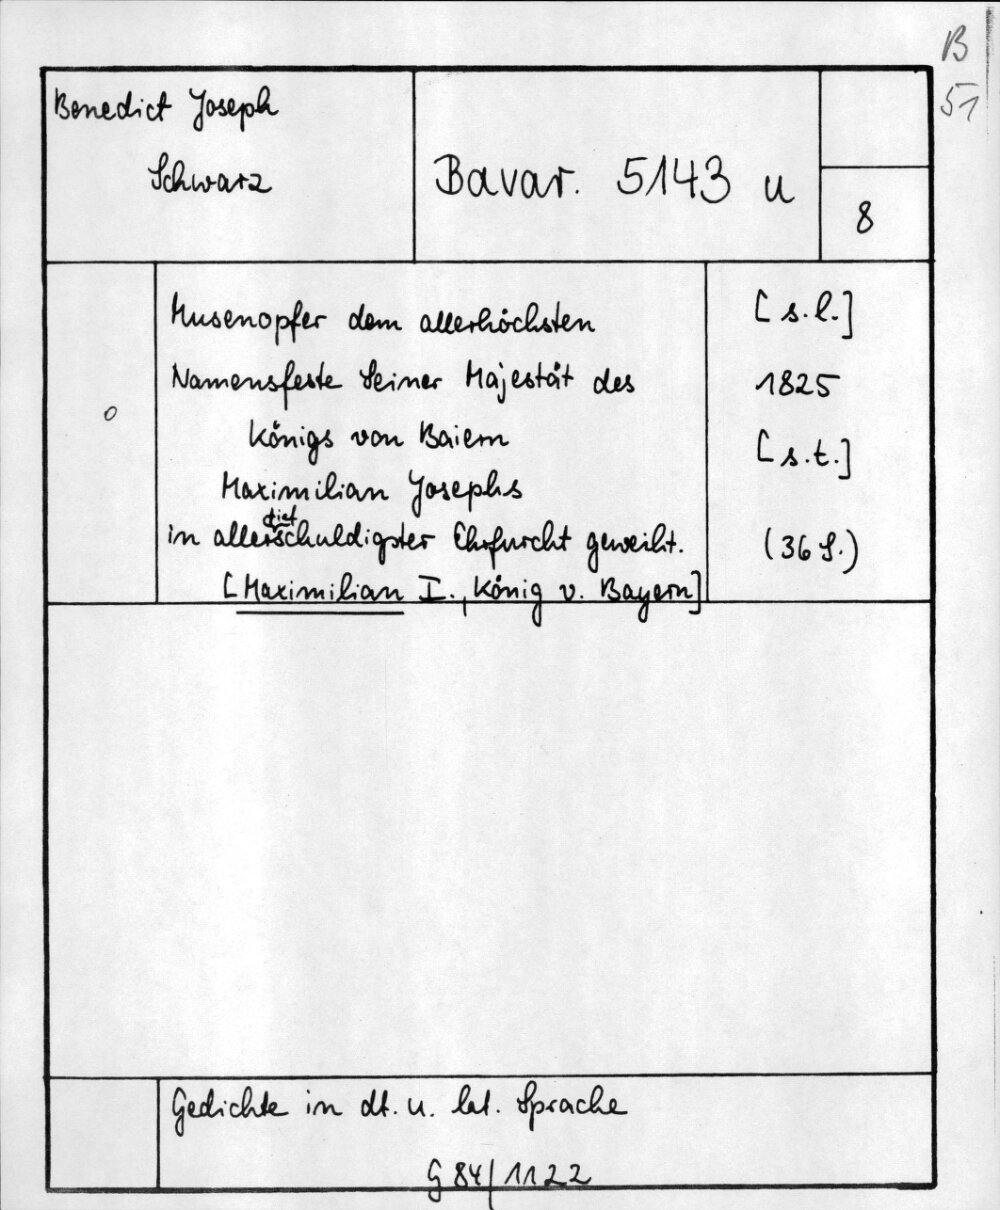 B
51
Benedict Joseph
Schwarz
Bavar. 5143 u
8
Musenopfer dem allerhöchsten
Namensfeste Seiner Majestät des
Königs von Baiern
Maximilian Josephs
tiefst
in allerschuldigster Ehrfurcht geweiht.
[Maximilian I., König v. Bayern]
o
[s.l.]
1825
[s.t.]
(36 S.)
Gedichte in dt. u. lat. Sprache
G 84/1122